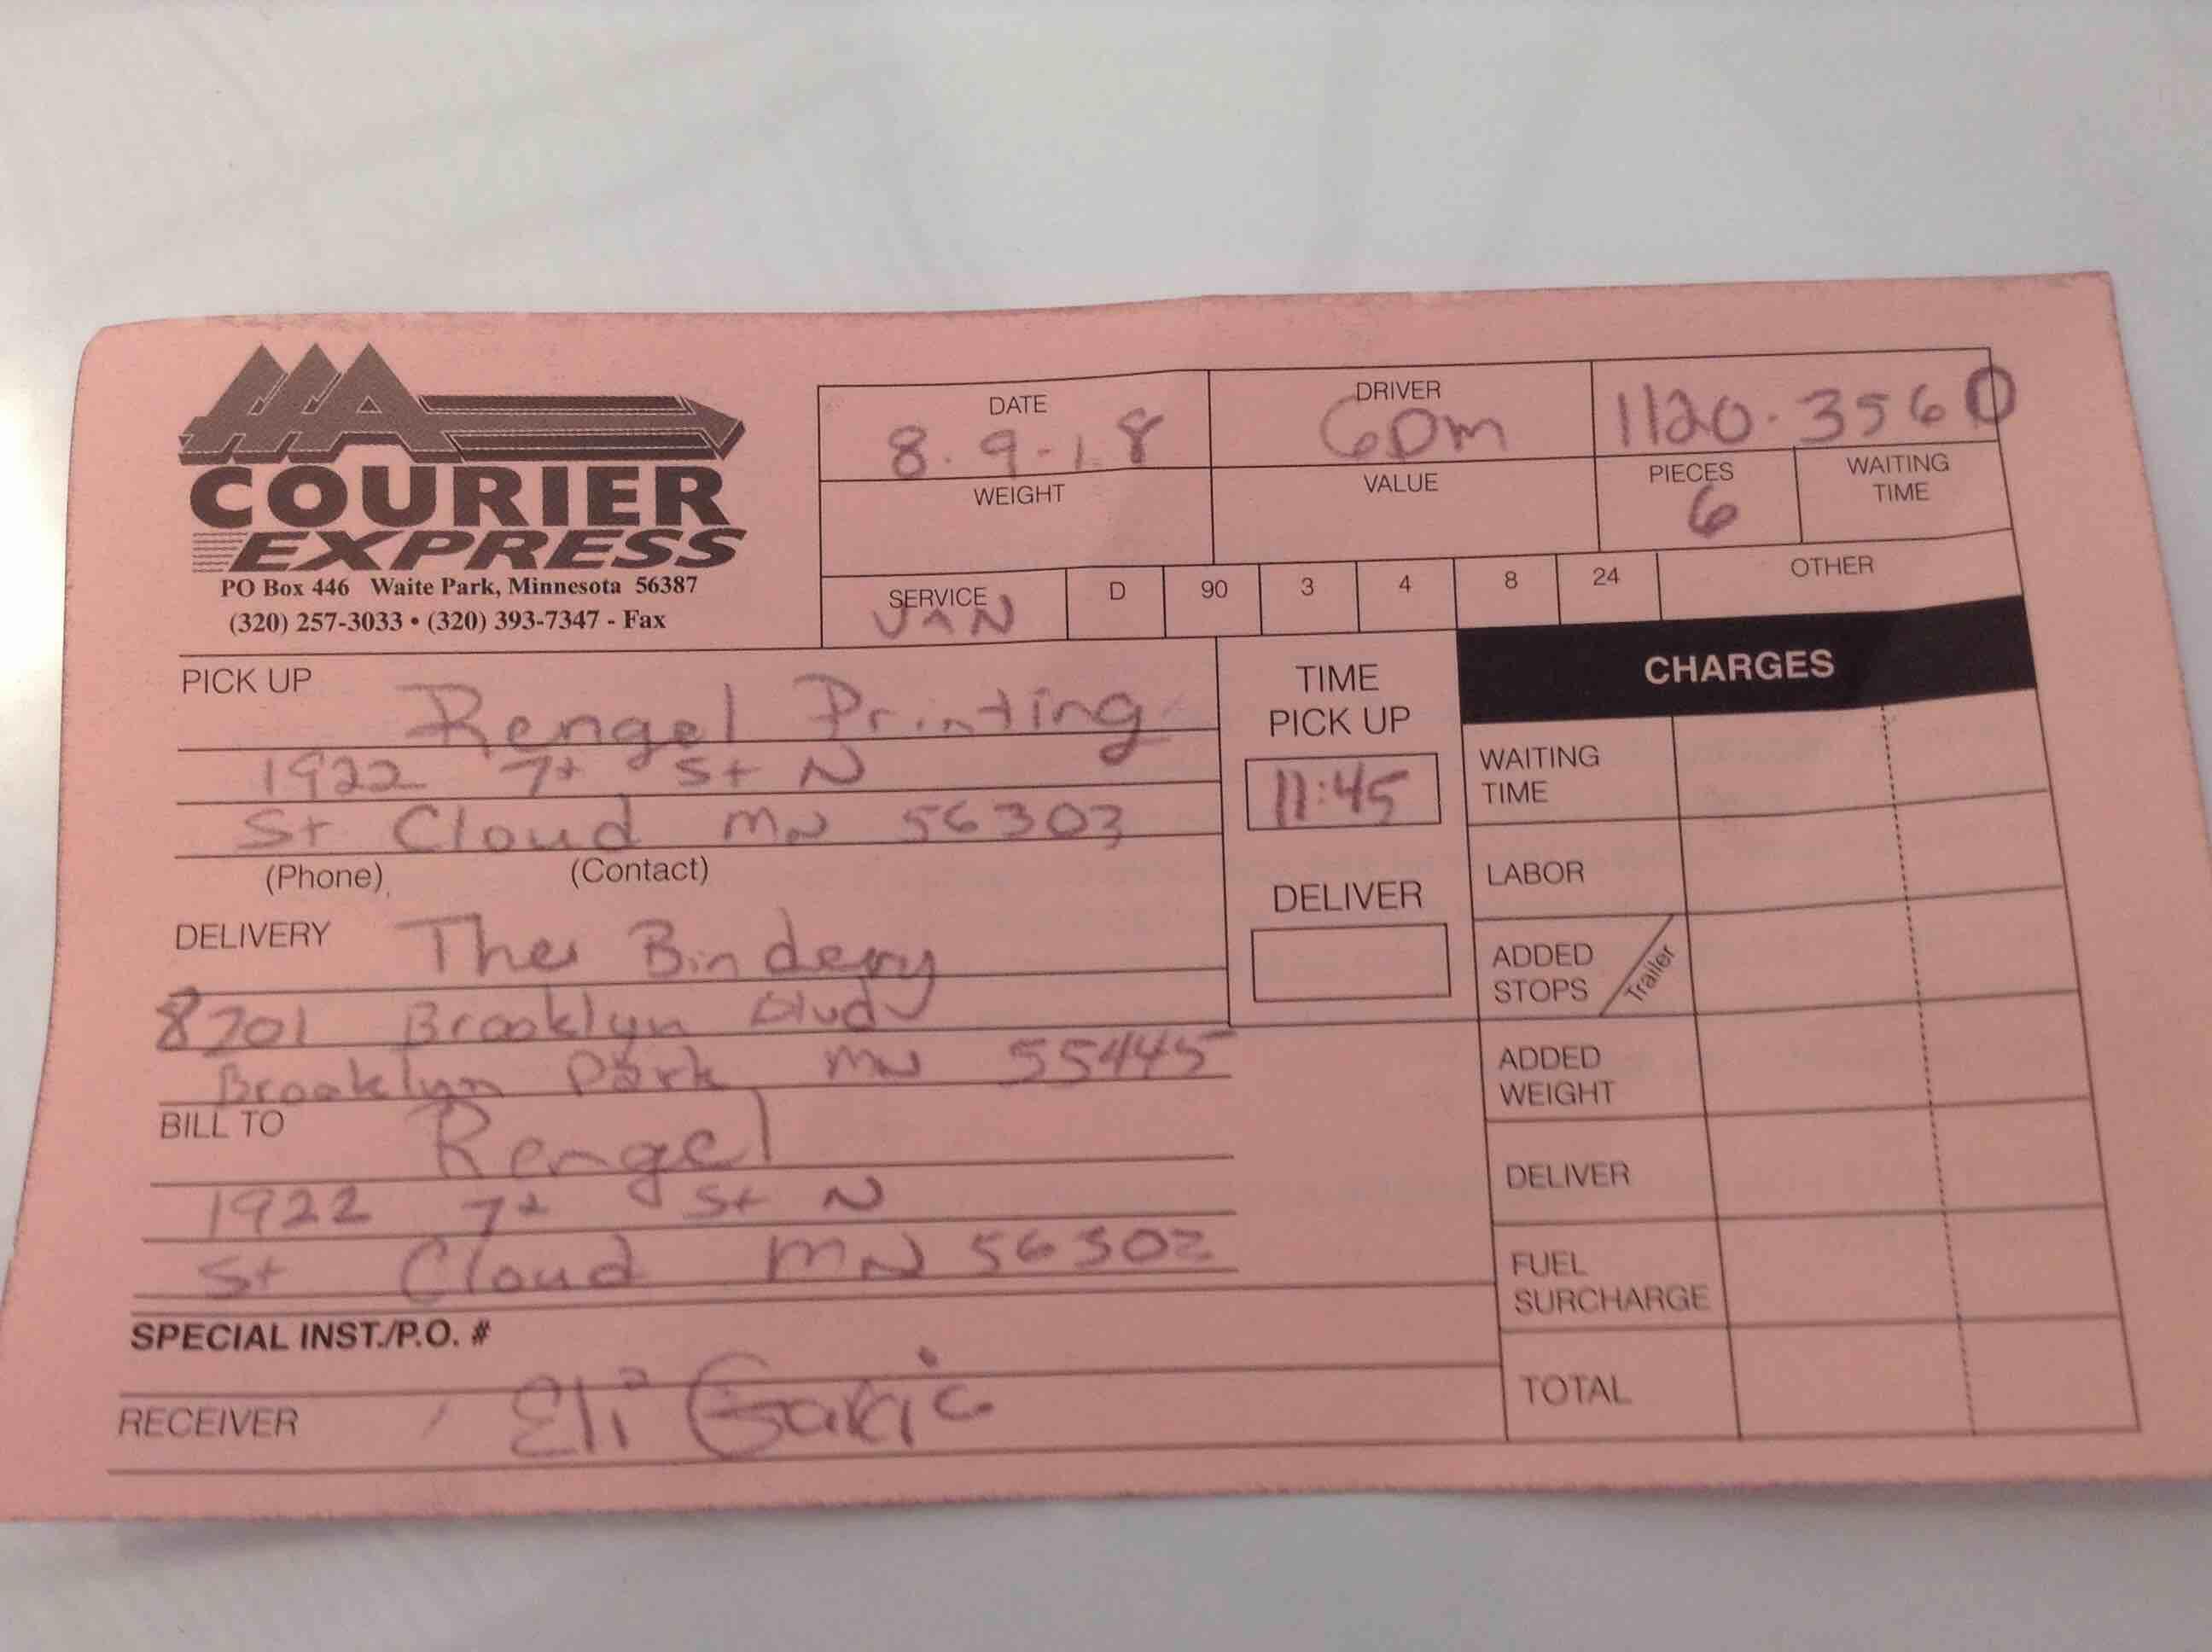 AAA
COURIER
EXPRESS
PO Box 446 Waite Park, Minnesota 56387
(320) 257-3033 • (320) 393-7347 - Fax
DATE
8.9.18
DRIVER
1120.3560
WEIGHT
VALUE
PIECES
6
WAITING
TIME
SERVICE
VAN
D 90 3 4 8 24 OTHER
PICK UP Rengel Printing
1922 7+ St N
St Cloud MN 56303
(Phone) (Contact)
TIME
PICK UP
11:45
DELIVER
DELIVERY The Bindery
8701 Brooklyn Blvd
Brooklyn Park MN 55445
BILL TO Rengel
1922 7+ St N
St Cloud MN 56302
SPECIAL INST./P.O. #
RECEIVER Eli
CHARGES
WAITING
TIME
LABOR
ADDED
STOPS Trailer
ADDED
WEIGHT
DELIVER
FUEL
SURCHARGE
TOTAL